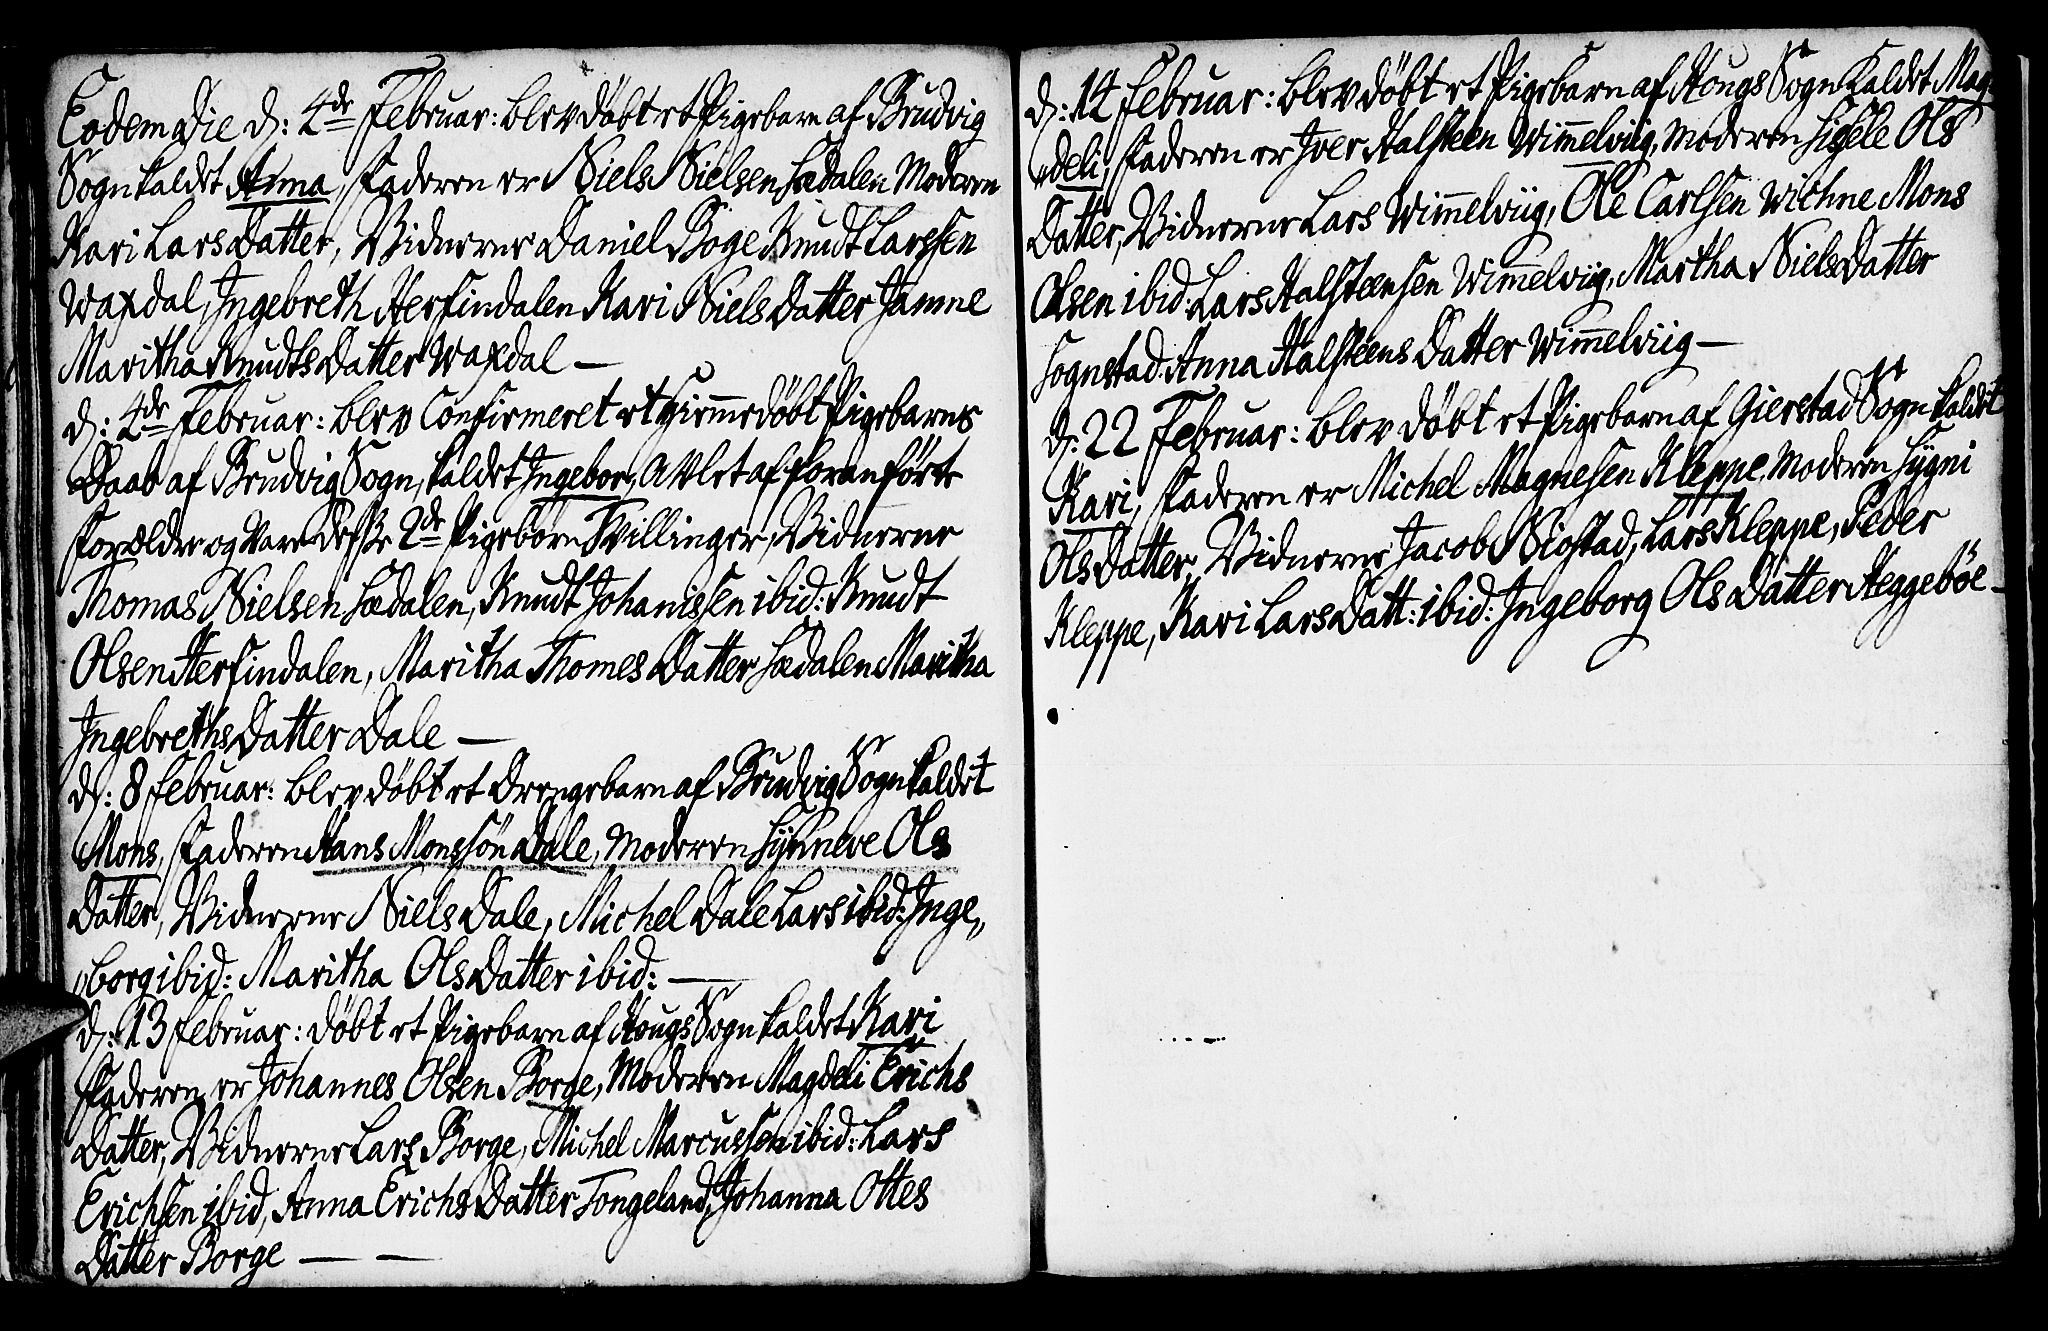 Eodem Die d: 4de Februar: blev döbt et Pigebarn af Brudvig
Sogn kaldet Anna, Faderen er Niels Nielsen Sædalen Moderen
Kari Lars Datter, Vidnerne Daniel Boge Knudt Larssen
Waxdal, Ingebreth Herfindalen Kari Niels Datter Jamne
Maritha Knudts Datter Waxdal —
d: 4de Februar: blev Confirmeret et hiemmedöbt Pigebarns
Daab af Brudvig Sogn, kaldet Ingebor, Avlet af foranförte
Forældre og Vare desse 2de Pigebörn Tvillinger, Vidnerne
Thomas Nielsen Sædalen, Knudt Johanissen ibid: Knudt
Olsen Herfindalen, Maritha Thomes Datter Sædalen Maritha
Ingebreths Datter Dale —
d: 8 Februar: blev döbt et Drengebarn af Brudvig Sogn kaldet
Mons, Faderen Hans Monssön Dale, Moderen Synneve Ols
Datter, Vidnerne Niels Dale, Michel Dale Lars ibid: Inge„
„borg ibid: Maritha Ols Datter ibid: —
d: 13 Februar: döbt et Pigebarn af Hougs Sogn kaldet Kari
Faderen er Johannes Olsen Borge, Moderen Magdeli Erichs
Datter, Vidnerne Lars Borge, Michel Marcussen ibid: Lars
Erichsen ibid, Anna Erichs Datter Tongeland, Johanna Ottes
Datter Borge — —
d: 14 Februar: blev döbt et Pigebarn af Hougs Sogn kaldet Mag„
„deli, Faderen er Iver Halsteen Wimmelviig, Moderen Sigele Ols
Datter, Vidnerne Lars Wimmelviig, Ole Carlsen Wichne Mons
Olsen ibid: Lars Halsteensen Wimmelviig, Martha Niels Datter
Sognstad Anna Halsteens Datter Wimmelviig —
d: 22 Februar: blev döbt et Pigebarn af Gierstad Sogn kaldet
Kari, Faderen er Michel Magnesen Kleppe, Moderen Sygni
Ols Datter, Vidnerne Jacob Niostad, Lars Kleppe, Peder
Kleppe, Kari Lars Datt: ibid: Ingeborg Ols Datter Heggeböe —